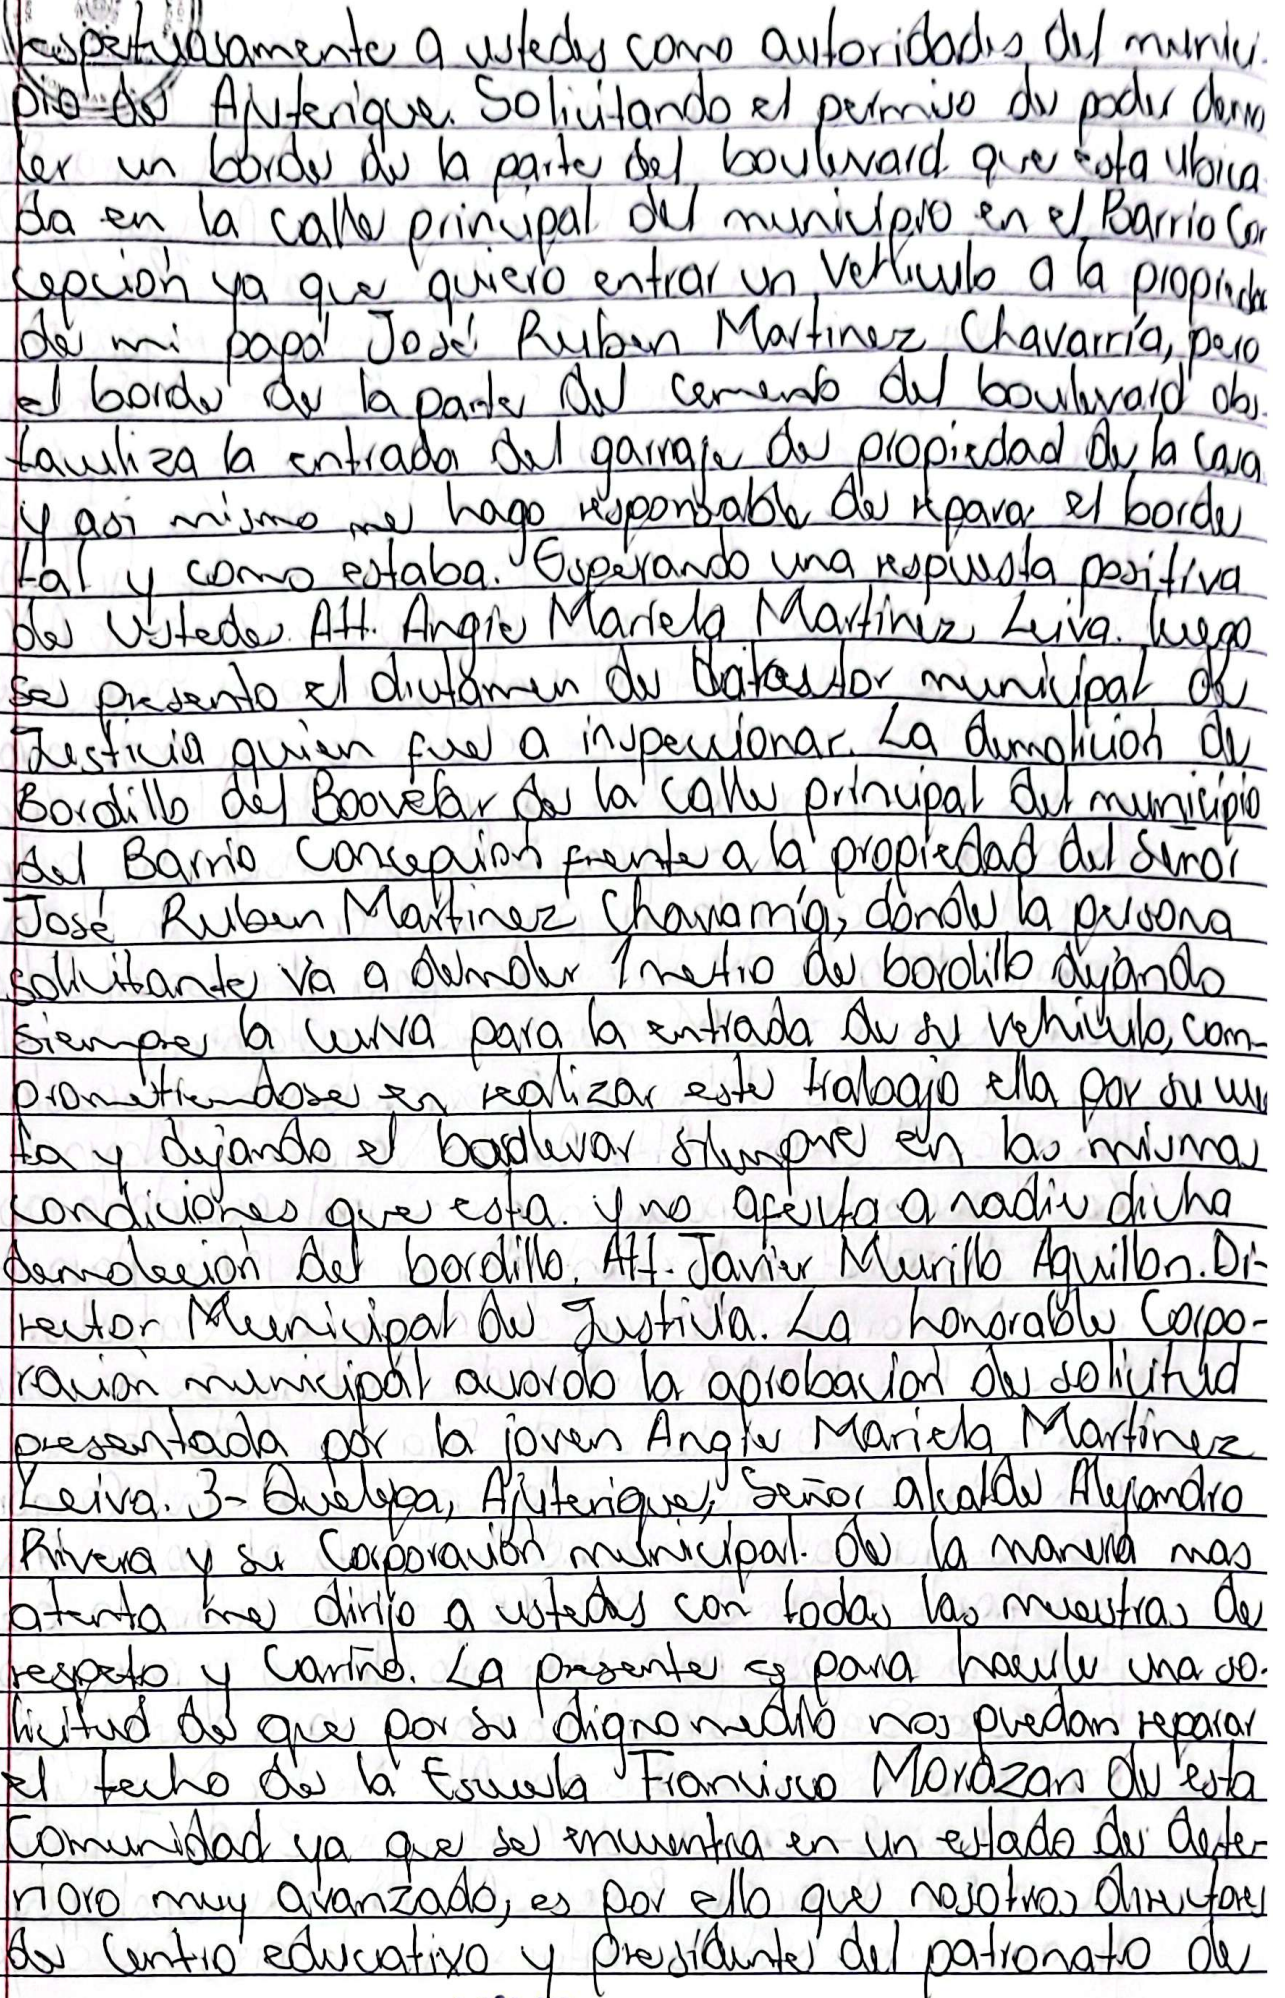 respetuosamente a ustedes como autoridades del munici-
pio de Ajuterique. Solicitando el permiso de poder demo
ler un borde de la parte del boulevard que esta ubica
da en la calle principal del municipio en el Barrio Con
cepción ya que quiero entrar un vehiculo a la propiedad
de mi papá José Ruben Martinez Chavarría, pero
el borde de la parte del cemento del boulevard obs-
taculiza la entrada del garraje de propiedad de la casa
y asi mismo me hago responsable de repara el borde
tal y como estaba. Esperando una respuesta positiva
de ustedes. Att. Angie Mariela Martinez Leiva. luego
se presento el dictamen de municipal de
Justicia quien fue a inspeccionar. La demolicion de
Bordillo del Boovelar de la calle principal del municipio
del Barrio Concepcion frente a la propiedad del Señor
José Ruben Martinez Chavarria, donde la persona
solicitante va a demoler 1 metro de bordillo dejando
siempre la curva para la entrada de su vehiculo, com-
prometiendose en realizar este trabajo ella por su cuen
ta y dejando el siempre en las mismas
condiciones que esta. y no afecta a nadie dicha
demoleción del bordillo. Att. Javier Murillo Aguillon. Di-
rector Municipal de Justicia. La honorable Corpo-
racion municipal acordo la aprobacion de solicitud
presentada por la joven Angie Mariela Martinez
Leiva. 3- Quelepa, Ajuterique, Señor alcalde Alejandro
Rivera y su Corporación municipal. de la manera mas
atenta me dirijo a ustedes con todas las muestras de
respeto y cariño. La presente es para hacerle una so-
licitud de que por su digno medio nos puedan reparar
el techo de la Escuela Francisco Morazan de esta
Comunidad ya que se encuentra en un estado de dete-
rioro muy avanzado, es por ello que nosotros directores
de centro educativo y presidente del patronato de